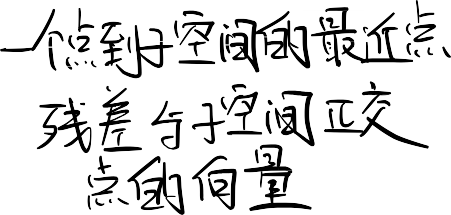 一个点到子空间的最近点
残差与子空间正交
点的向量